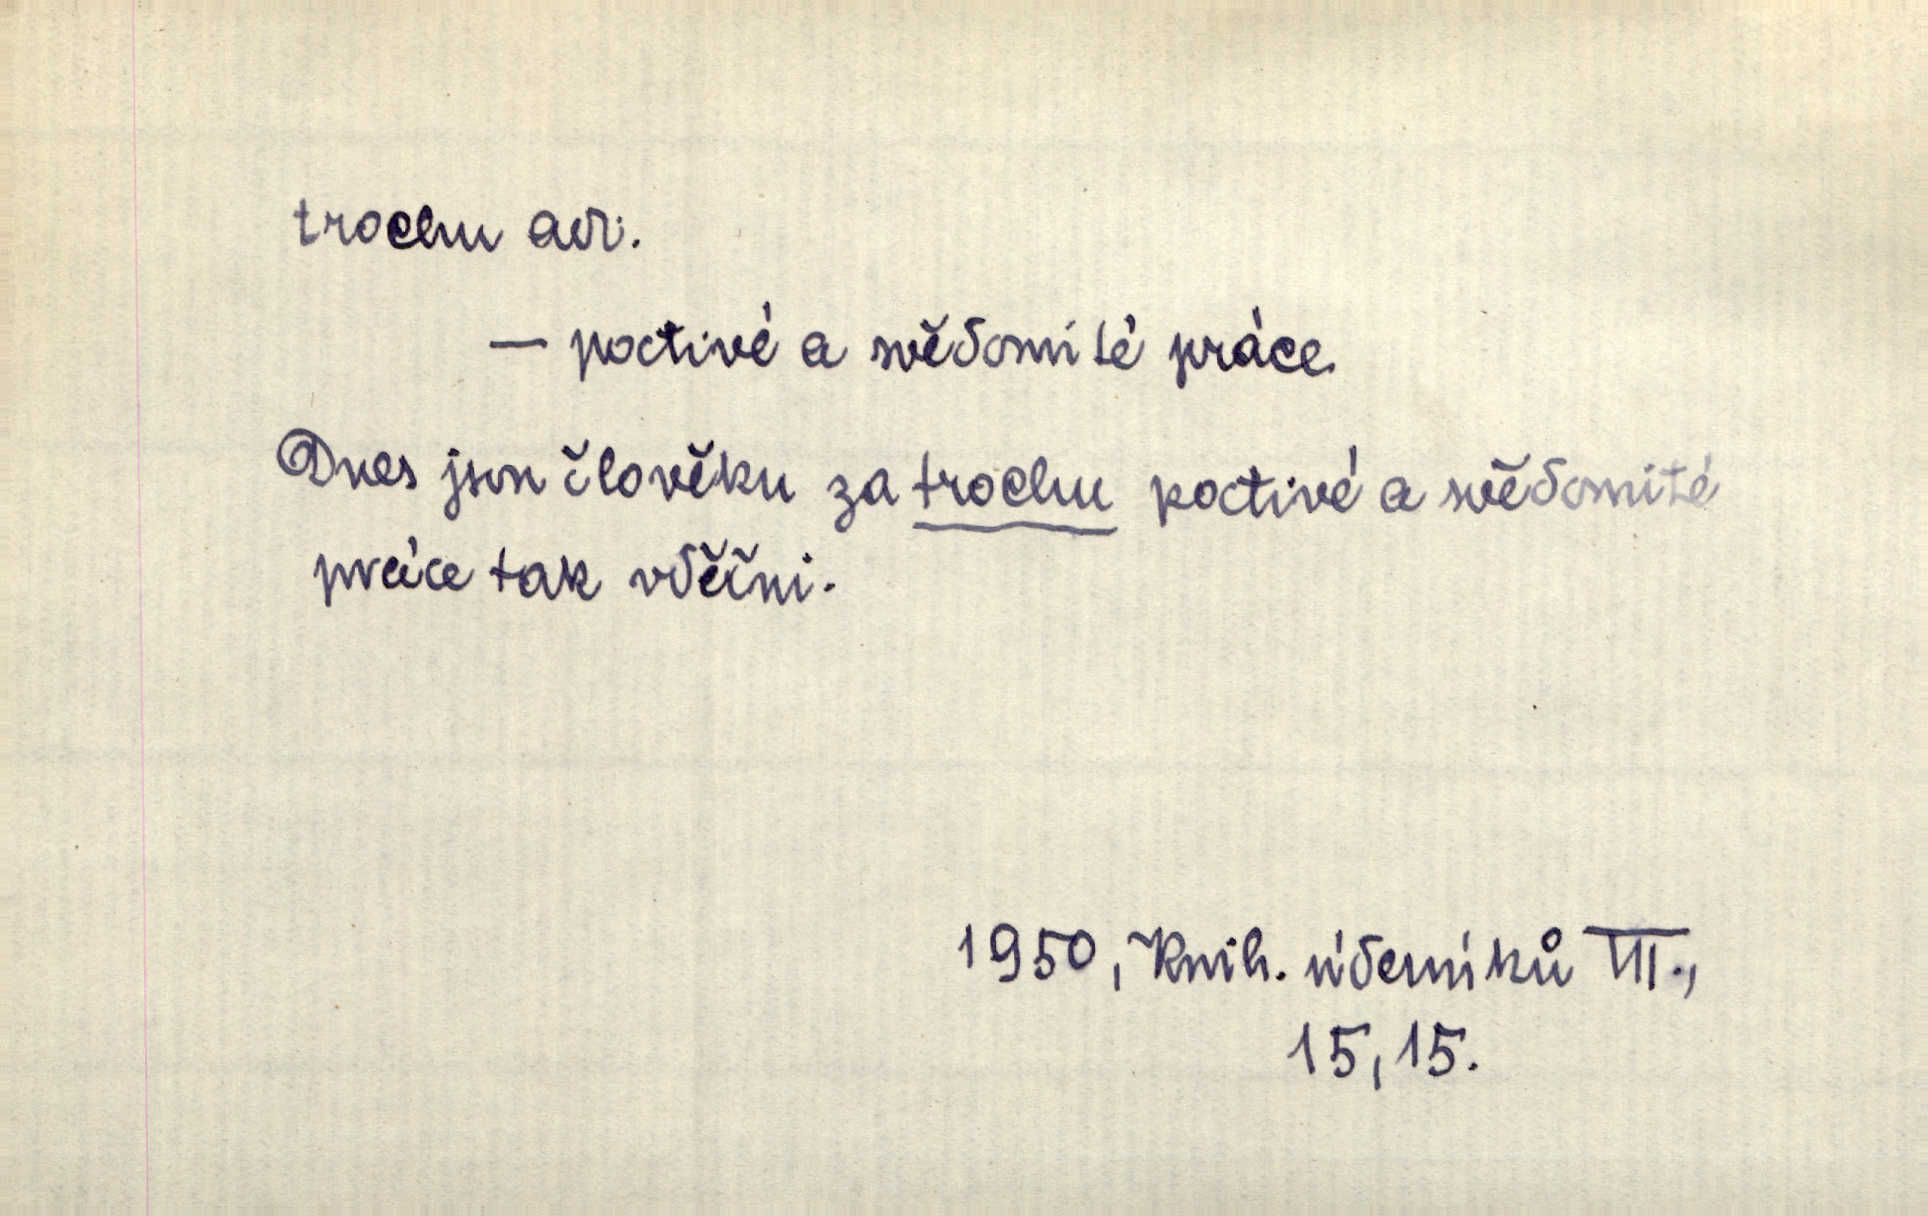 trochu adv.
— poctivé a svědomité práce.
Dnes jsou člověku za trochu poctivé a svědomité
práce tak vděčni.
1950, Knih. úderníků III.,
15, 15.